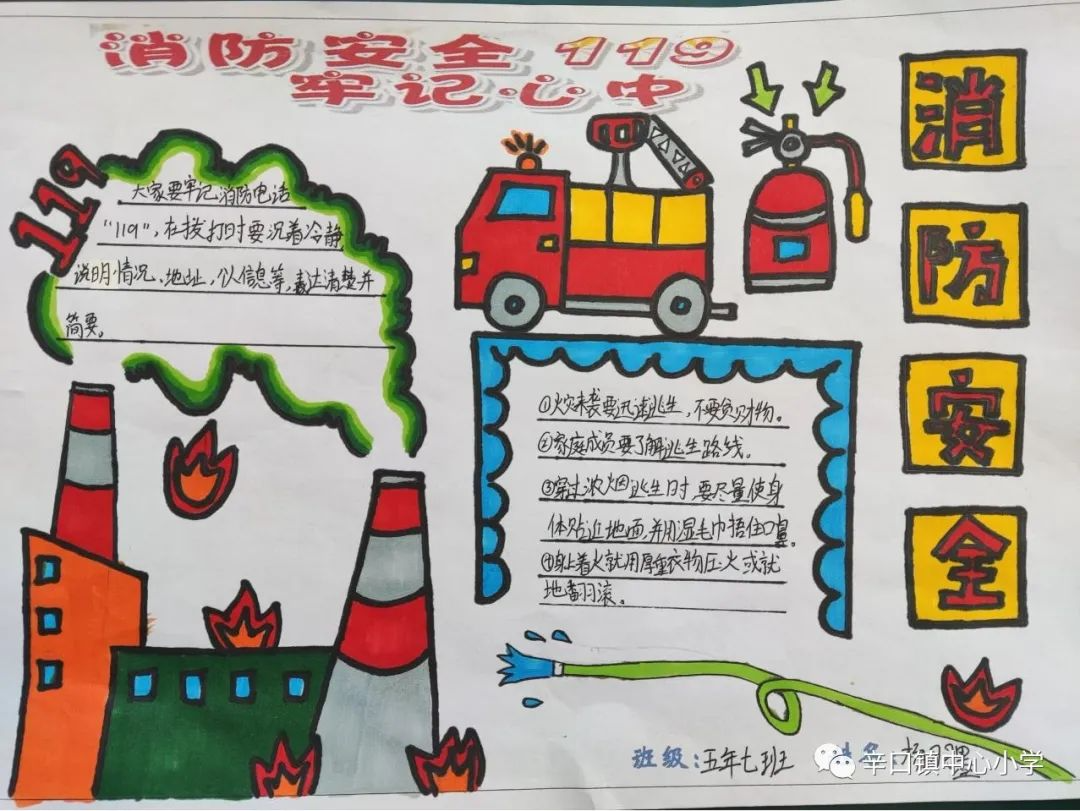 消防安全 119
牢记心中
119
大家要牢记消防电话
“119”，在拨打时要沉着冷静
说明情况、地址，个人信息等，表达清楚并
简要。
①火灾来袭要迅速逃生，不要贪财物。
②家庭成员要了解逃生路线。
③穿过浓烟逃生时，要尽量使身
体贴近地面，并用湿毛巾捂住口鼻。
④身上着火就用厚重衣物压火或就
地翻滚。
消
防
安
全
班级：五年七班
辛口镇中心小学